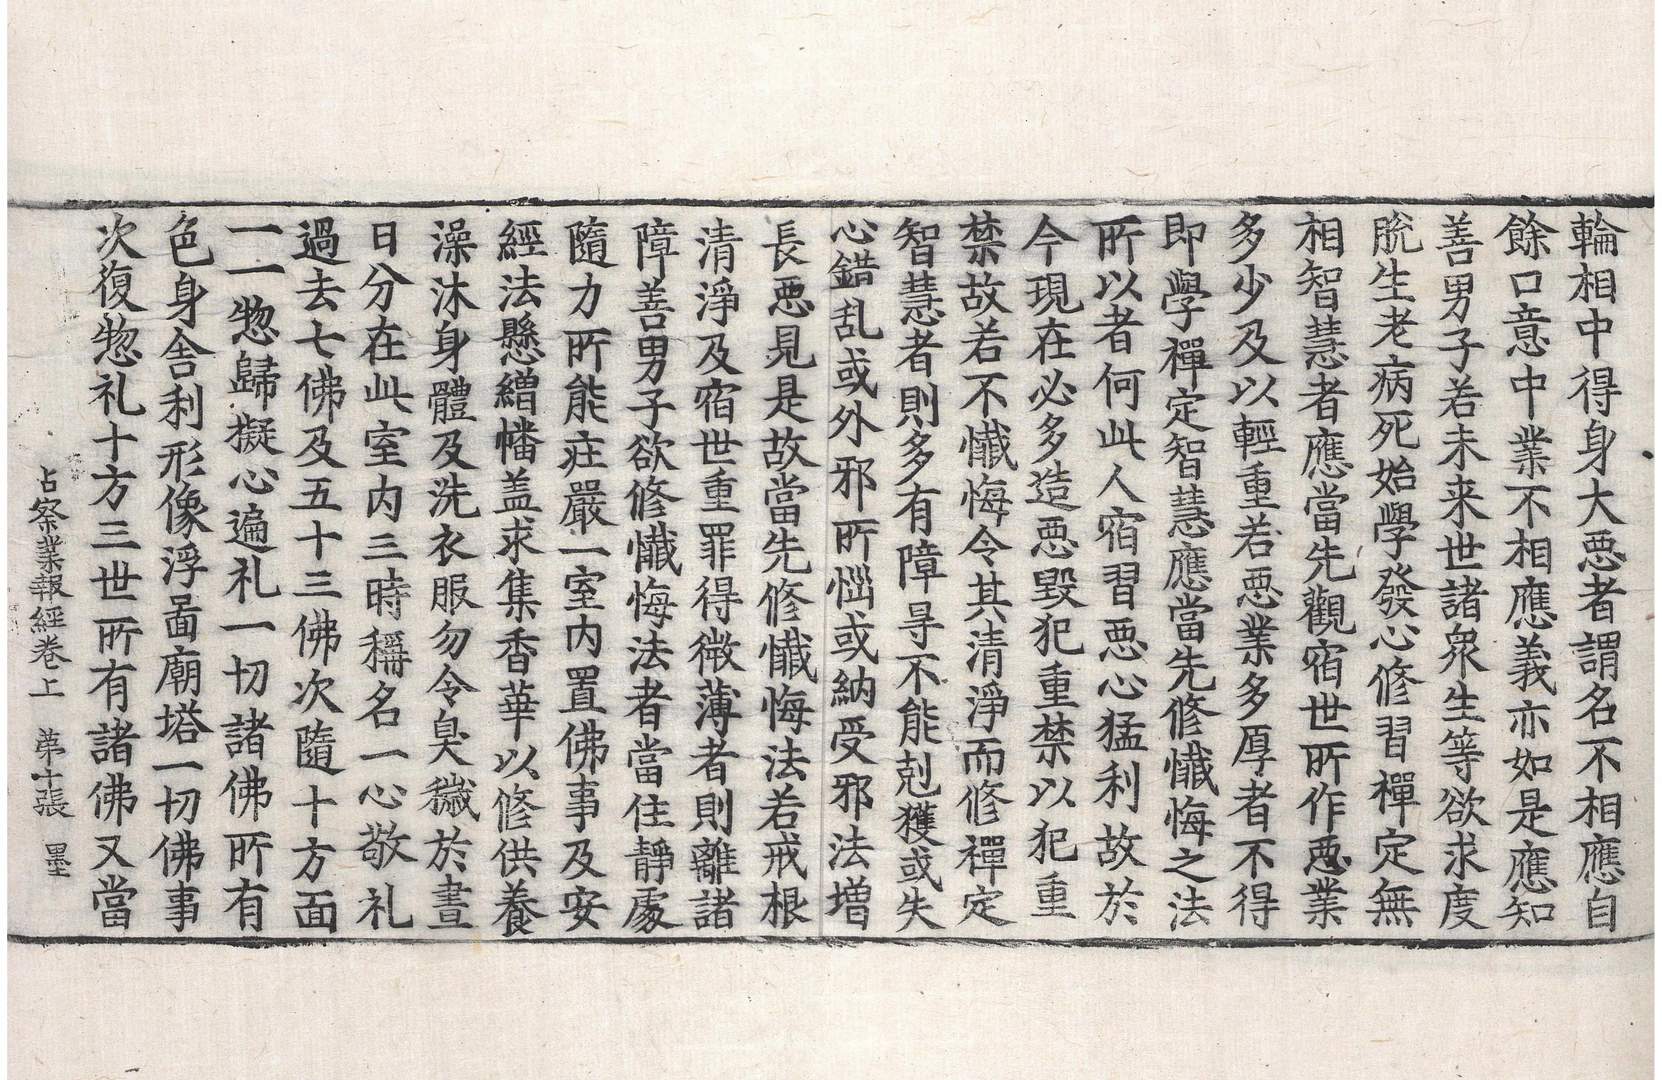 輪相中得身大悪者謂名不相應自
餘口意中業不相應義亦如是應知
善男子若未来世諸衆生等欲求度
脫生老病死始學發心修習禪定無
相智慧者應當先觀宿世所作惡業
多少及以輕重若悪業多厚者不得
即學禪定智慧應當先修懺悔之法
所以者何此人宿習悪心猛利故於
今現在必多造悪毀犯重禁以犯重
禁故若不懺悔令其清淨而修禪定
智慧者則多有障㝵不能剋獲或失
心錯乱或外邪所惱或納受邪法增
長悪見是故當先修懺悔法若戒根
清淨及宿世重罪得微薄者則離諸
障善男子欲修懺悔法者當住靜處
隨力所能莊嚴一室內置佛事及安
經法懸繒幡盖求集香華以修供養
澡沐身體及洗衣服勿令臭穢於晝
日分在此室內三時稱名一心敬礼
過去七佛及五十三佛次隨十方面
一一惣歸擬心遍礼一切諸佛所有
色身舎利形像浮啚廟塔一切佛事
次復惣礼十方三世所有諸佛又當
占察業報經卷上　第十張　墨